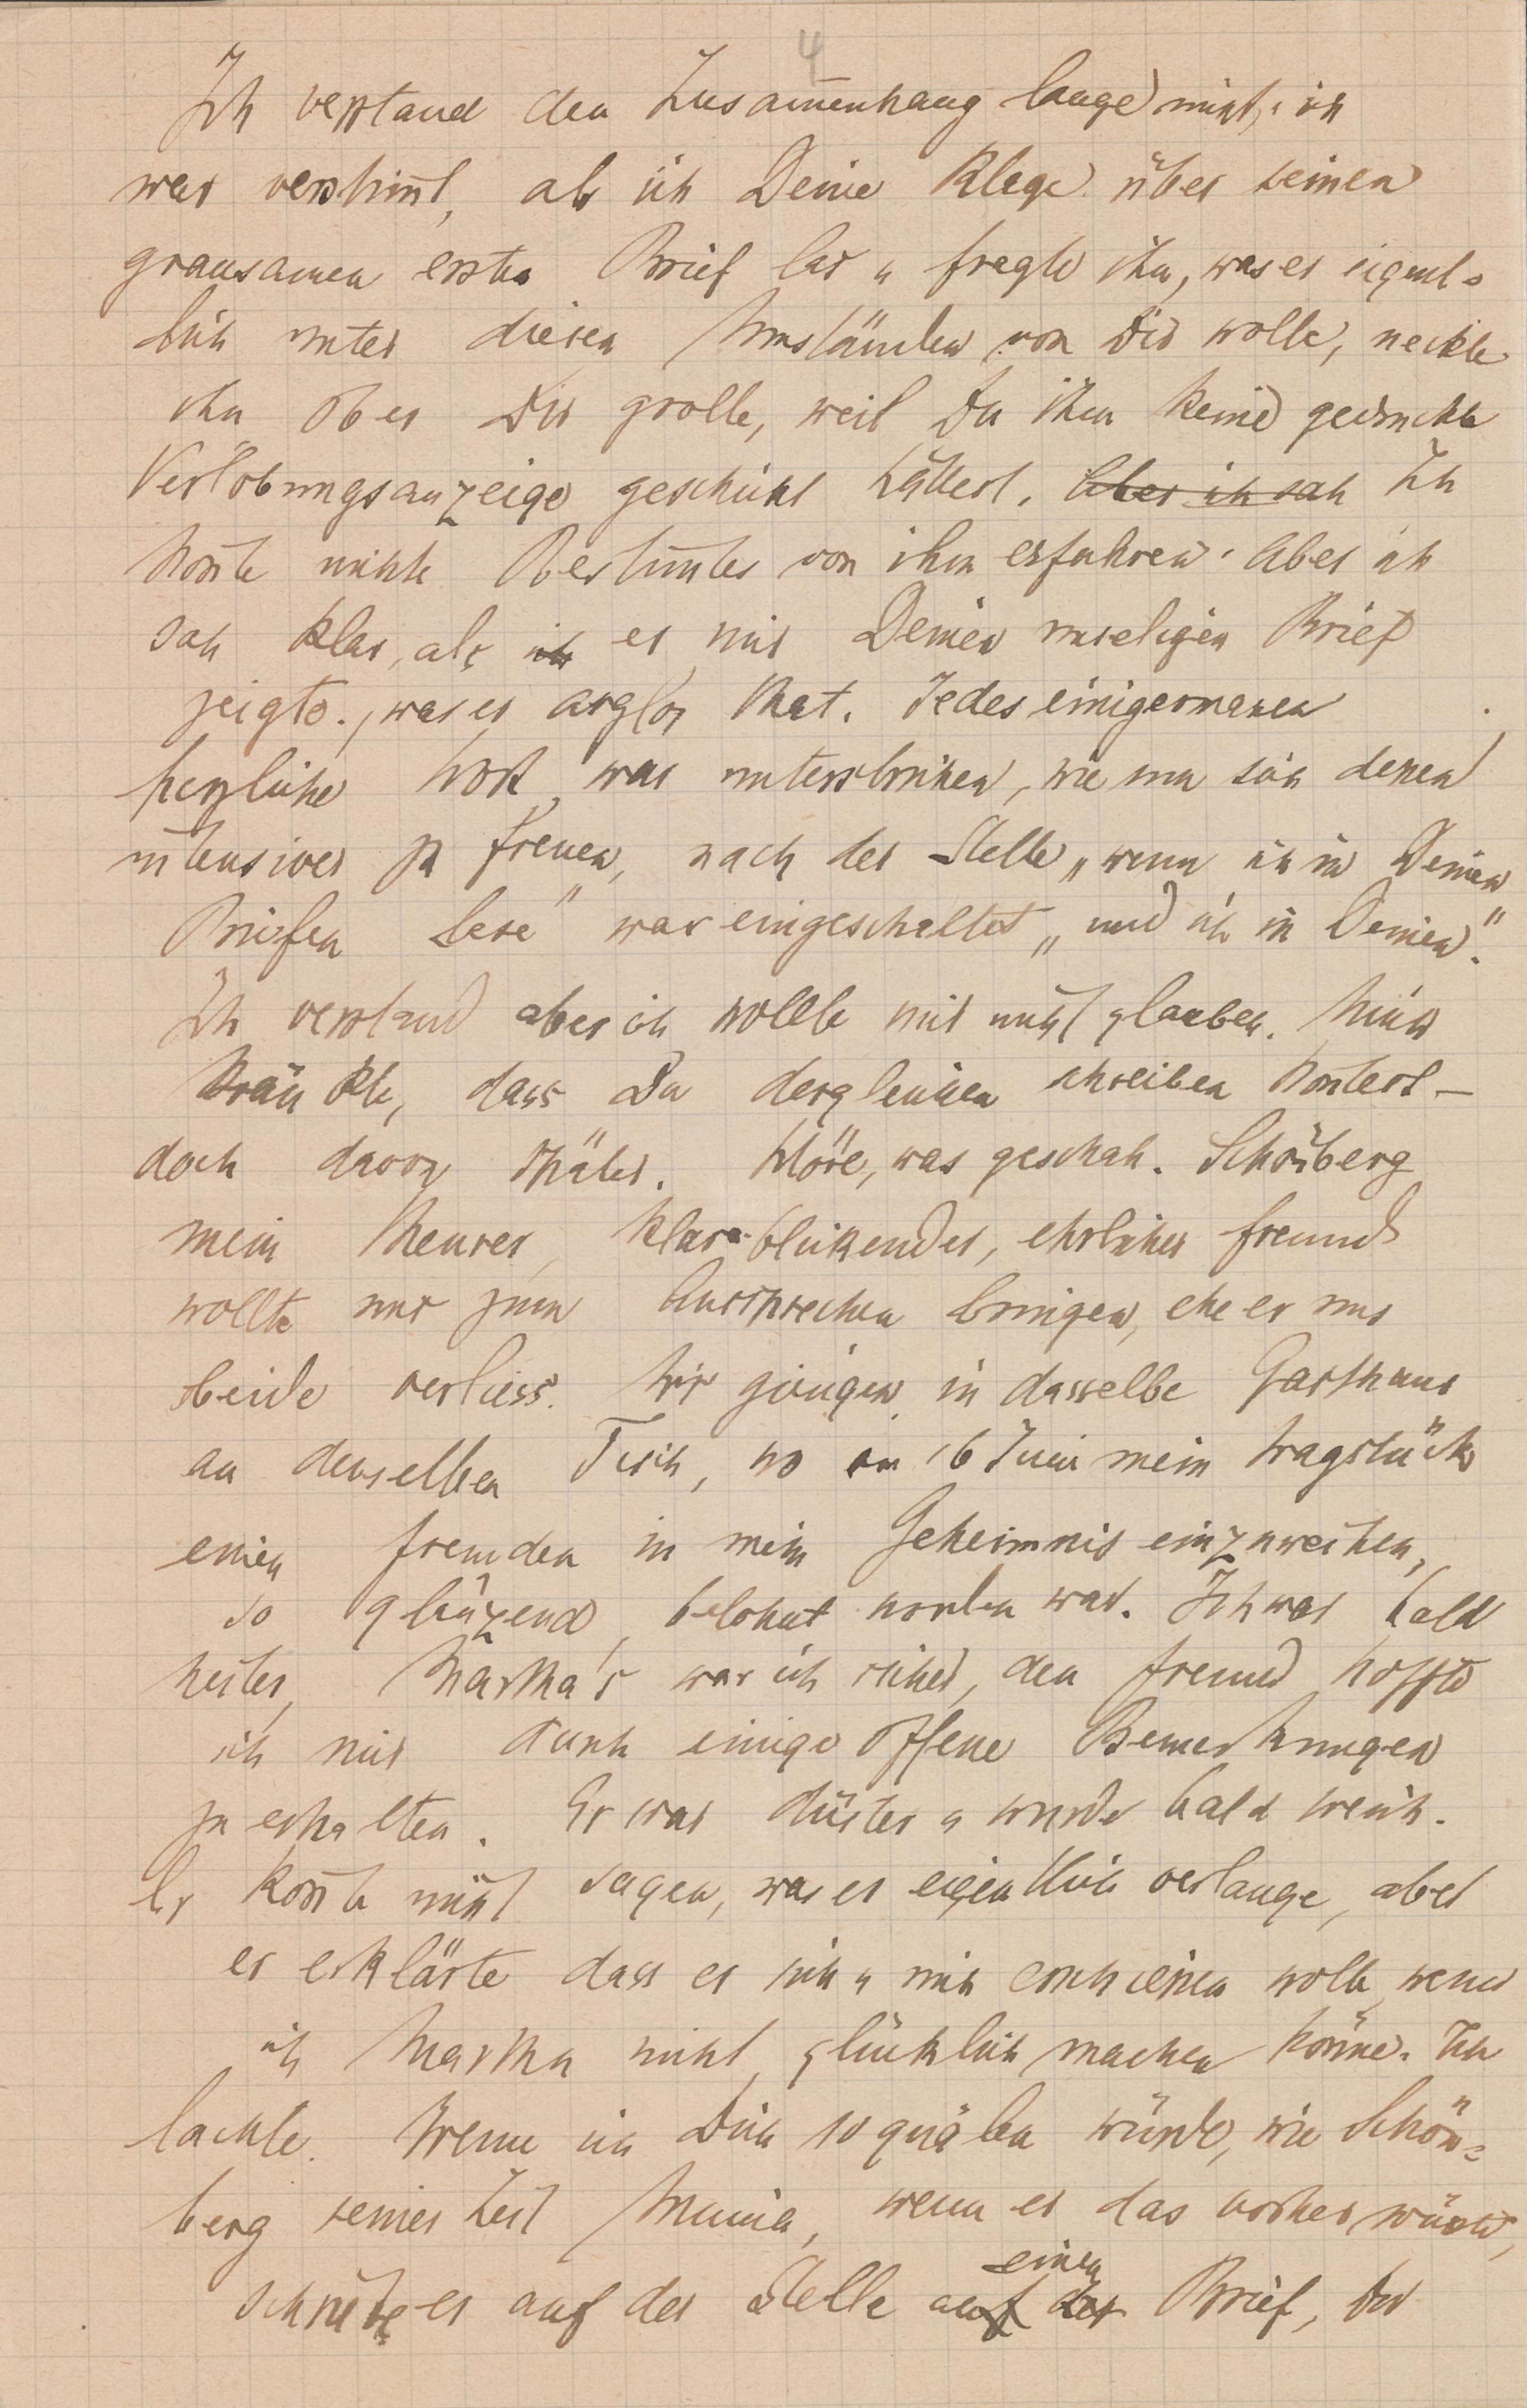 4
Ich verstand den Zusam̄enhang lange nicht, ich
war verstim̄t, als ich Deine Klage über seinen
grausamen ersten Brief las u fragte ihn, was er eigent-
lich unter diesen Umständen von Dir wolle, neckte
ihn ob er Dir grolle, weil Du ihm keine gedruckte
Verlobungsanzeige geschickt hättest. Aber ich sah Ich
kon̄te nichts Bestim̄tes von ihm erfahren. Aber ich
sah klar, als ich er mir Deinen unseligen Brief
zeigte, was er arglos that. Jedes einigermassen
herzliche Wort war unterstrichen, wie um sich dessen
intensiver zu freuen, nach der Stelle „wenn ich in Deinen
Briefen lese" war eingeschaltet „und ich in Deinen."
Ich verstand aber ich wollte mir nicht glauben. Mich
kränkte, dass Du dergleichen schreiben kon̄test –
doch davon später. Höre, was geschah. Schön̄berg
mein theurer, klarblickender, ehrlicher Freund
wollte uns zum Aussprechen bringen, ehe er uns
beide verliess. Wir gingen in dasselbe Gasthaus
an denselben Tisch, wo am 16 Juni mein Wagstück
einen Fremden in mein Geheimnis einzuweihen,
so glänzend belohnt worden war. Ich war bald
heiter, Martha's war ich sicher, den Freund hoffte
ich mir durch einige offene Bemerkungen
zu erhalten. Er war düster u wurde bald weich.
Er kon̄te nicht sagen, was er eigentlich verlange, aber
er erklärte dass er sich u mich erschiessen wolle, wenn
ich Martha nicht glücklich machen kön̄ne. Ich
lachte. Wenn ich Dich so quälen würde, wie Schön-
berg seiner Zeit Minna, wenn er das vorher wüsste,
schriebe er auf der Stelle auf der einen Brief, Du